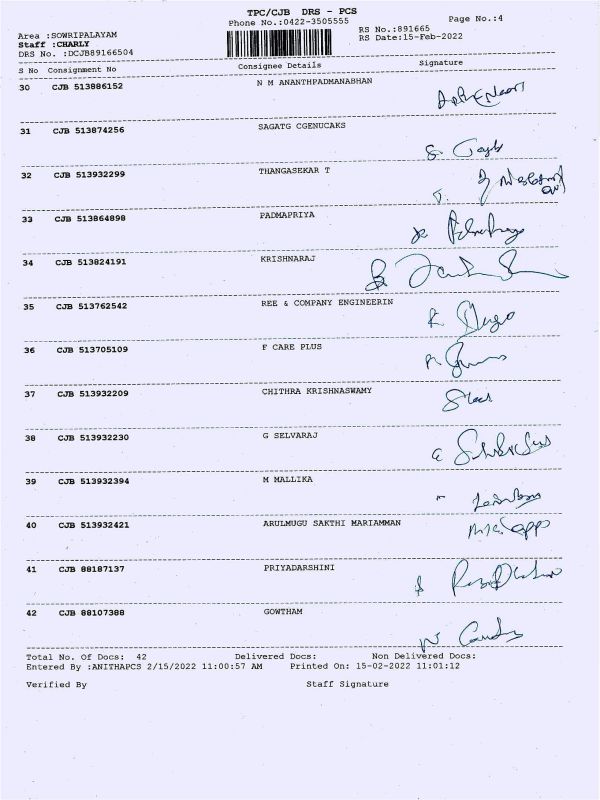 TPC/CJB DRS - PCS
Phone No.:0422-3505555
Page No.:4
Area :SOWRIPALAYAM
RS No.:891665
Staff :CHARLY
RS Date:15-Feb-2022
DRS No. :DCJB89166504
S No Consignment No Consignee Details Signature
30 CJB 513886152 N M ANANTHPADMANABHAN
31 CJB 513874256 SAGATG CGENUCAKS
32 CJB 513932299 THANGASEKAR T
33 CJB 513864898 PADMAPRIYA
34 CJB 513824191 KRISHNARAJ
35 CJB 513762542 REE & COMPANY ENGINEERIN
36 CJB 513705109 F CARE PLUS
37 CJB 513932209 CHITHRA KRISHNASWAMY
38 CJB 513932230 G SELVARAJ
39 CJB 513932394 M MALLIKA
40 CJB 513932421 ARULMUGU SAKTHI MARIAMMAN
41 CJB 88187137 PRIYADARSHINI
42 CJB 88107388 GOWTHAM
Total No. Of Docs: 42 Delivered Docs: Non Delivered Docs:
Entered By :ANITHAPCS 2/15/2022 11:00:57 AM Printed On: 15-02-2022 11:01:12
Verified By Staff Signature